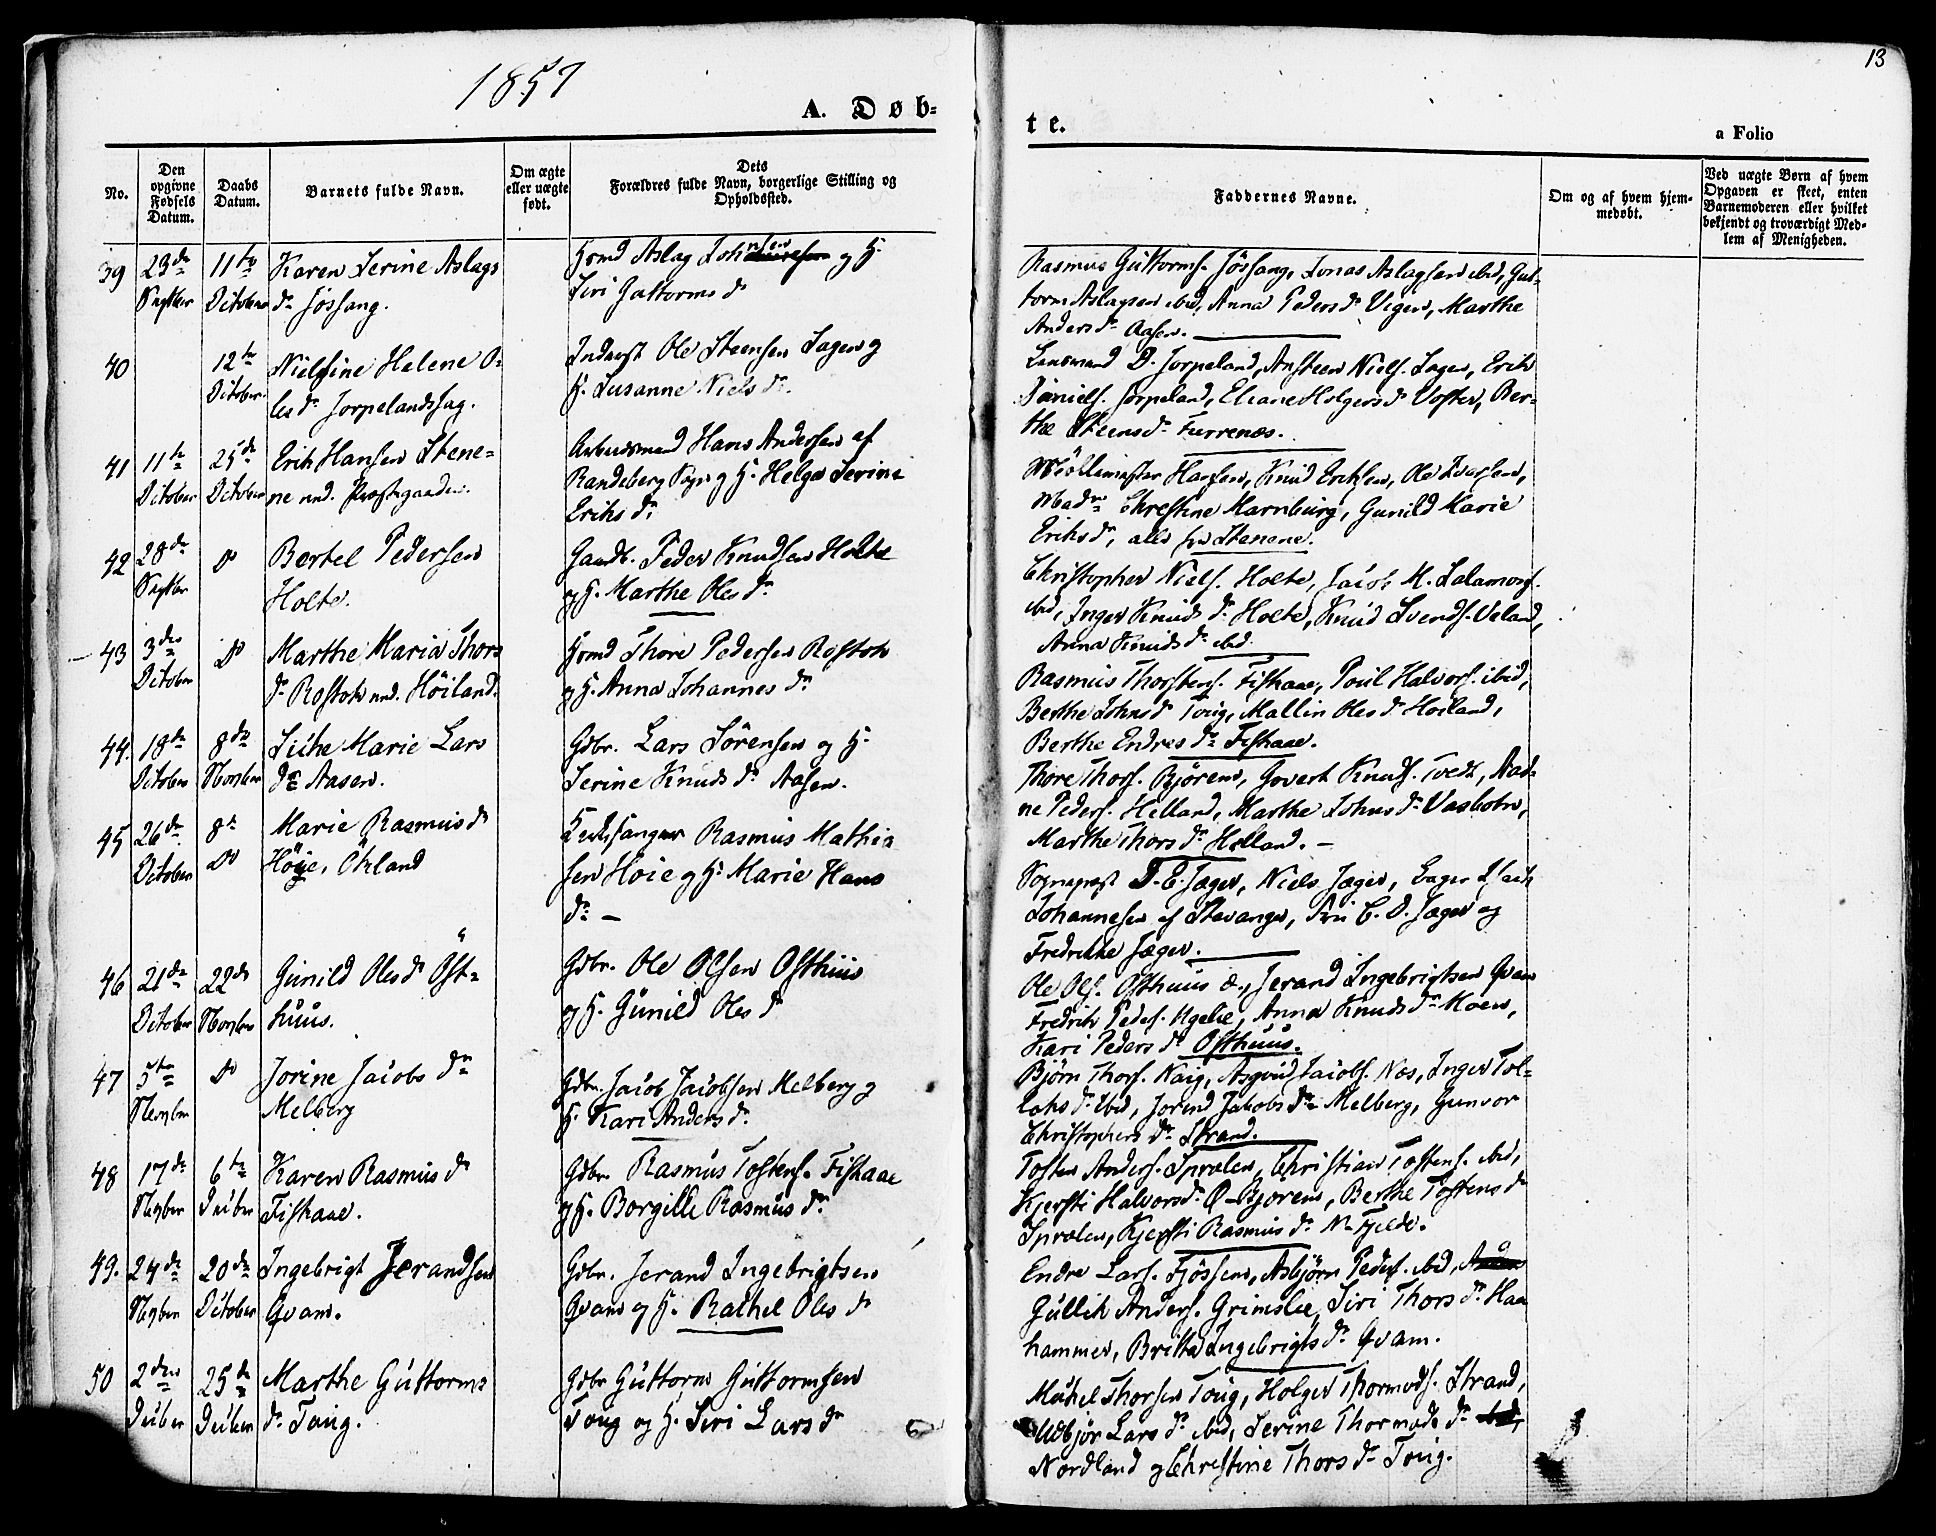 1857
13
A. Døb-
te.
a Folio
No.
Den
opgivne
Fødsels
Datum.
Daabs
Datum.
Barnets fulde Navn.
Om ægte
eller uægte
født.
Dets
Forældres fulde Navn, borgerlige Stilling og
Opholdssted.
Faddernes Navne.
Om og af hvem hjem-
medøbt.
Ved uægte Børn af hvem
Opgaven er skeet, enten
Barnemoderen eller hvilket
bekjendt og troværdigt Med-
lem af Menigheden.
39
23de
Septbr
11te
October
Karen Serine Aslags
dr Jøssang.
Hsmd Aslag Johnsen og H.
Siri Guttorms dr
Rasmus Guttorms. Jøssang, Jonas Aslagsen ibid, Gut-
torm Aslagsen ibid, Anna Peders dr Vigen, Marthe
Anders dr Aasen.
40
12te
October
Nielsine Helene O-
les dr Jorpelandssag.
Inderst Ole Steensen Sagen og
H. Susanne Niels dr.
Lensmand D. Jorpeland, Ansteen Niels. Sagen, Erik
Daniels. Jorpeland, Eliane Holgers dr Voster, Ber-
the Steens dr Furrenæs.
41
11te
October
25de
October
Erik Hansen Stene-
ne und. Præstegaarden.
Arbeidsmand Hans Andersen af
Randeberg Sogn og H. Helga Serine
Eriks dr.
Møllemester Hansen, Knud Eriksen, Ole Iversen,
Madm Christine Marnburg, Gunild Marie
Eriks dr, alle fra Stenene.
42
28de
Septbr
do
Bertel Pedersen
Holte.
Gaardb. Peder Knudsen Holte
og H. Marthe Oles dr
Christopher Niels. Holte, Jacob M. Salamons.
ibid, Inger Knuds dr Holte, Knud Svends. Veland,
Anna Knuds dr ibid.
43
3die
October
do
Marthe Maria Thors
dr Rostok und. Høiland.
Hsmd Thore Pedersen Rostok
og H. Anna Johannes dr
Rasmus Thorstens. Fiskaae, Poul Halvors. ibid,
Berthe Johns dr Toug, Mallin Oles dr Høiland,
Berthe Endres dr Fiskaae.
44.
18de
October
8de
Novbr
Sithe Marie Lars
dr Aasen.
Gdbr. Lars Sörensen og H.
Serine Knuds dr Aasen.
Thore Thors. Bjøren, Govert Knuds. Tvedt, Aad-
ne Peders. Helland, Marthe Johns dr Vasbotn,
Marthe Thors dr Helland.
45
26de
October
8de
do
Marie Rasmus dr
Höie, Ökland
Kirkesanger Rasmus Mathia
sen Höie og H. Marie Hans
dr
Sognepræst D. E. Jæger, Niels Jæger,
Johannesen af Stavanger, Fru C. D. Jæger og
Fredrikke Jæger.
46
21de
October
22de
Novbr
Gunild Oles dr Öst-
huus.
Gdbr. Ole Olsen Osthuus
og H. Gunild Oles dr
Ole Ols. Osthuus d., Jerand Ingebrigtsen Qvam
Fredrik Peders. Ugelie, Anna Knuds dr Moen,
Kari Peders dr Osthuus.
47
5te
Novbr
do
Jorine Jacobs dr
Melberg
Gdbr. Jacob Jacobsen Melberg og
H. Kari Anders dr.
Bjørn Thors. Kaig, Asgvid Jacobs. Næs, Inger Tol-
laks dr ibid, Jorend Jakobs dr Melberg, Gunvor
Christophers dr Strand.
48
17de
Novbr
6te
Decbr
Karen Rasmus dr
Fiskaae.
Gdbr. Rasmus Tostens. Fiskaae
og H. Borgille Rasmus dr
Tosten Anders. Spralen, Christian Tostens. ibid,
Kjersti Halvors dr Ø-Bjoren, Berthe Tostens dr
Spralen, Kjersti Rasmus dr N-Fjelde.
49.
24de
Novbr
20de
October
Ingebrigt Jerandsen
Qvam.
Gdbr. Jerand Ingebrigtsen
Qvam og H. Rachel Oles dr
Endre Lars. Fjössen, Asbjørn Peders. ibid,
Gullik Anders. Grimslie, Siri Thors dr Haa
hammer, Britha Ingebrigts dr Qvam.
50
2den
Decber
25de
Decber
Marthe Guttorms
dr Toug.
Gdbr Guttorm Guttormsen
Toug og H. Siri Lars dr
Mikkel Thorsen Toug, Holger Thormods. Strand,
Udbjør Lars dr ibid, Serine Thormods dr ibid,
Nordland og Christine Thors dr Toug.